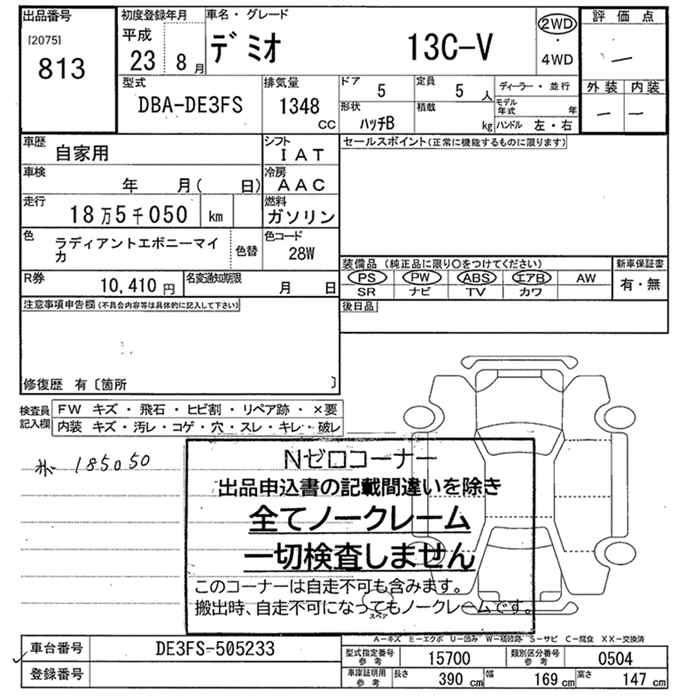 出品番号
[2075]
813
初度登録年月
平成
23 8月
車名・グレード
デミオ 13C-V
2WD
・
4WD
評価点
—
外装 内装
— —
型式
DBA-DE3FS
排気量
1348
CC
ドア
5
定員
5 人
形状
ハッチB
積載
kg
ディーラー・並行
モデル年式 年
ハンドル 左・右
車歴
自家用
シフト
IAT
車検
年 月( 日)
冷房
AAC
走行
18万5千050 km
燃料
ガソリン
色
ラディアントエボニーマイカ
色替
色コード
28W
R券
10,410 円
名変通知期限
月 日
セールスポイント(正常に機能するものに限ります)
装備品 (純正品に限り○をつけてください)
PS PW ABS エアB AW
SR ナビ TV カワ
新車保証書
有・無
後日品
注意事項申告欄(不具合内容等は具体的に記入して下さい)
修復歴 有〔箇所 〕
検査員記入欄
FW キズ・飛石・ヒビ割・リペア跡・×要
内装 キズ・汚レ・コゲ・穴・スレ・キレ・破レ
185050
Nゼロコーナー
出品申込書の記載間違いを除き
全てノークレーム
一切検査しません
このコーナーは自走不可も含みます。
搬出時、自走不可になってもノークレームです。
スペア
A－キズ E－エクボ U－凹み W－補修跡 S－サビ C－腐食 XX－交換済
車台番号
DE3FS-505233
登録番号
型式指定番号
参考
15700
類別区分番号
参考
0504
車庫証明用
参考
長さ
390 cm
幅
169 cm
高さ
147 cm